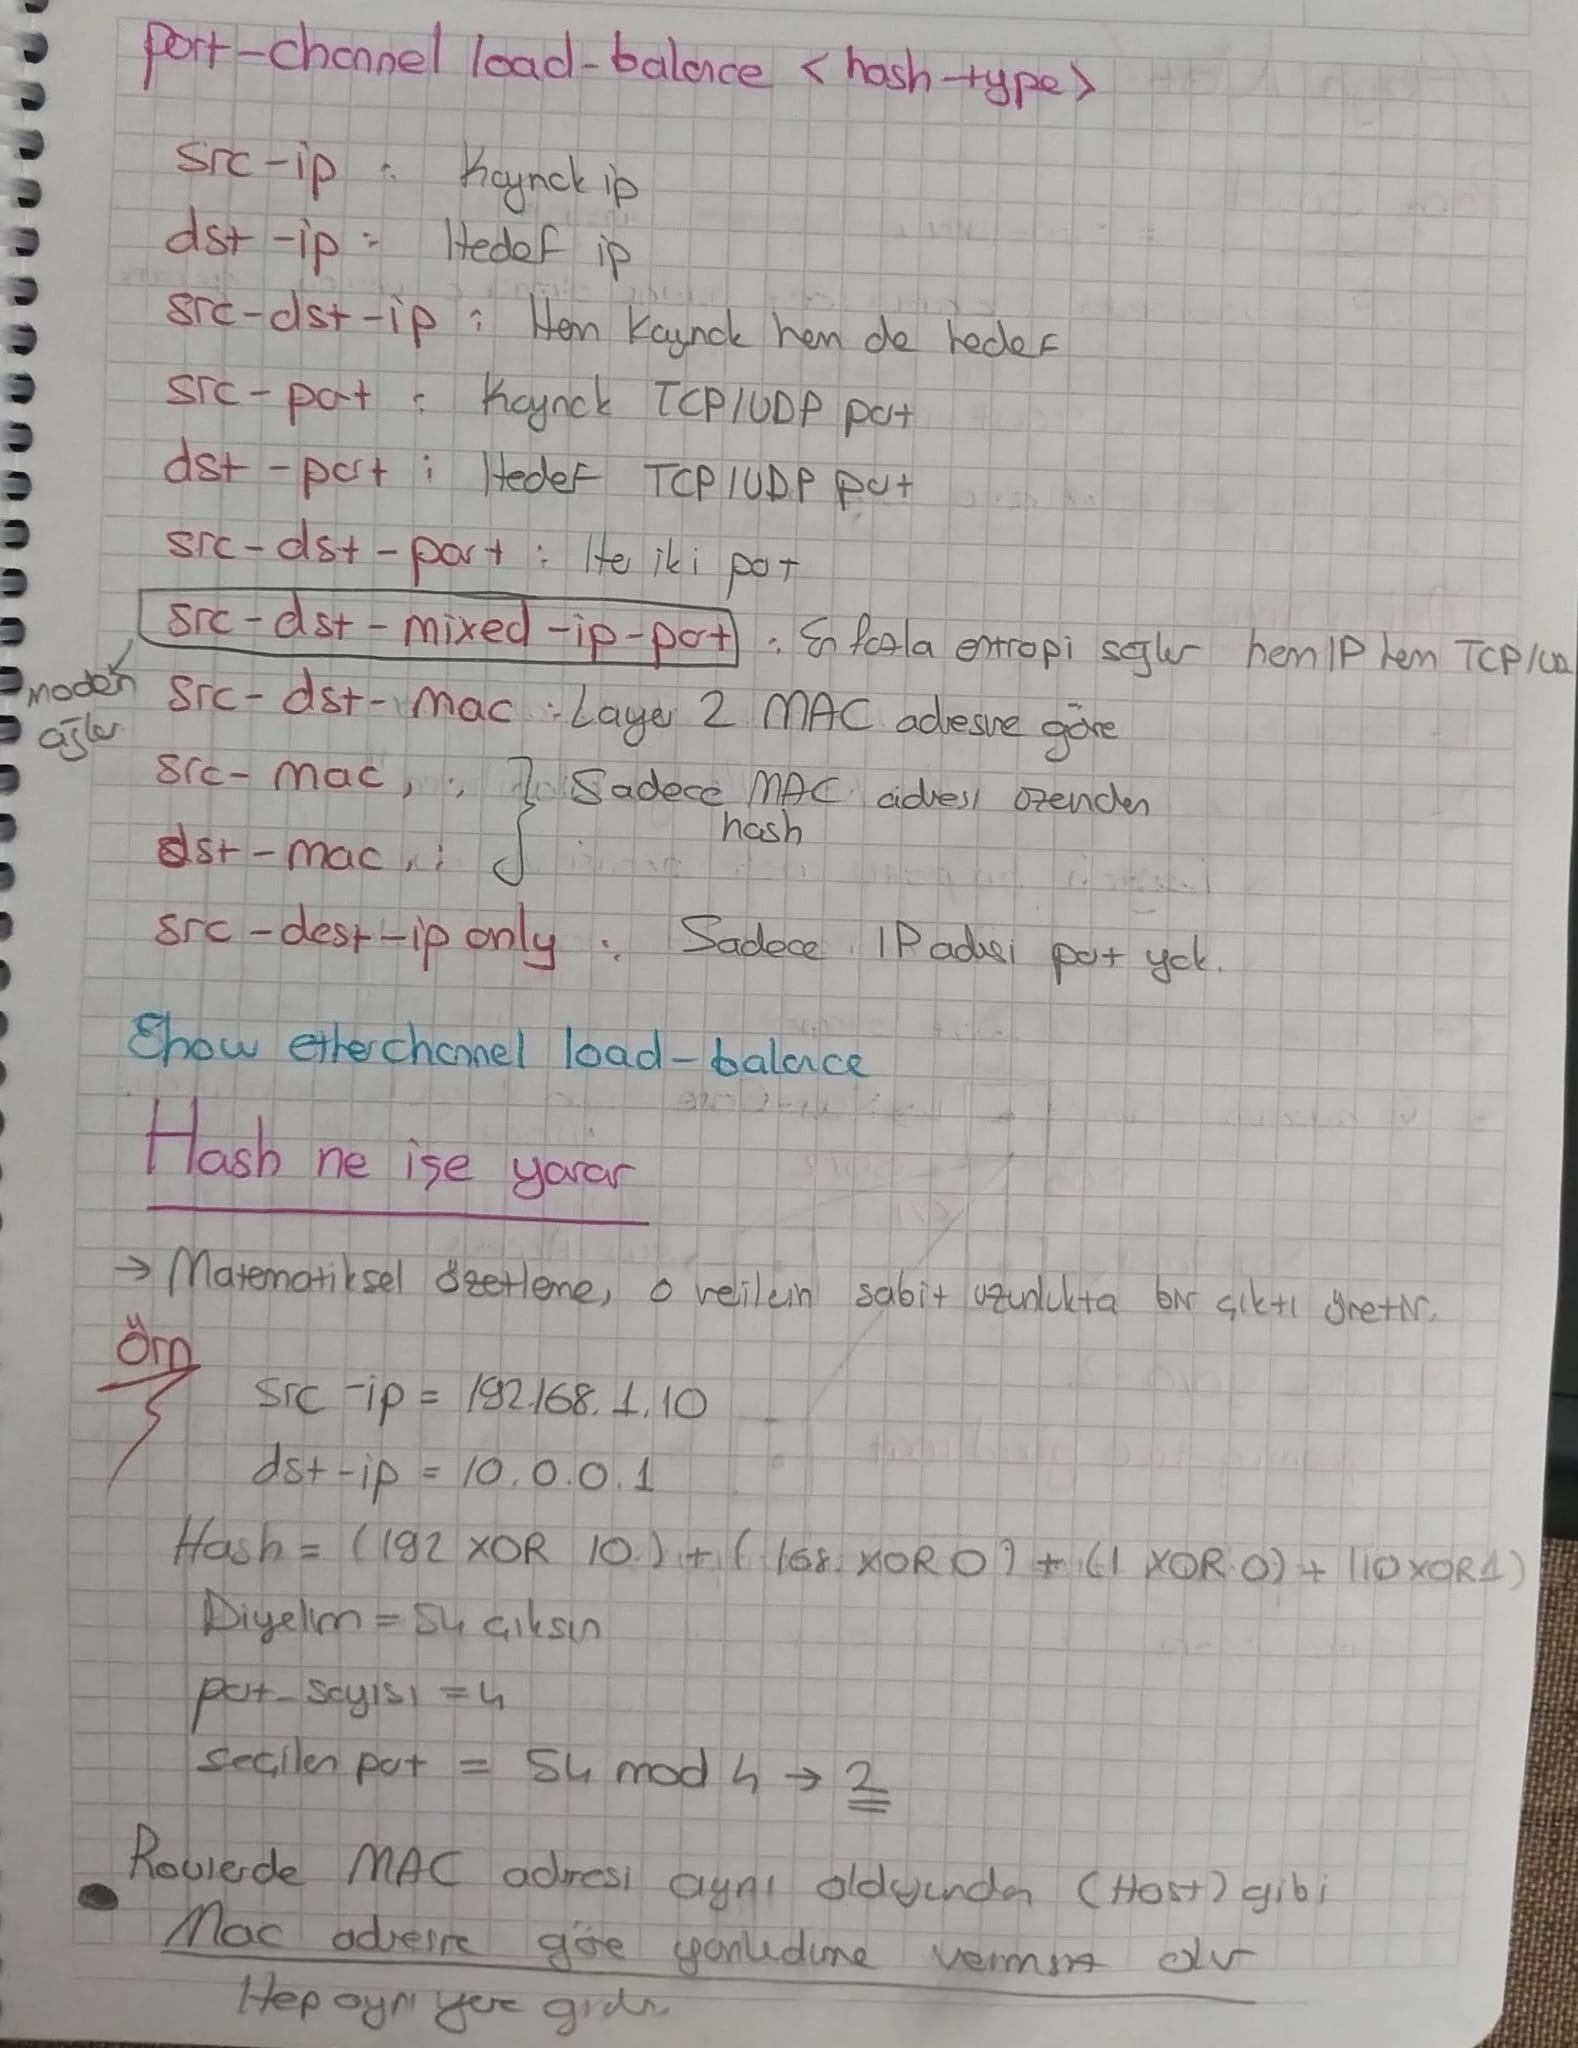 port-channel load-balance <hash-type>
src-ip : Kaynak ip
dst-ip : Hedef ip
src-dst-ip : Hem Kaynak hem de hedef
src-port : Kaynak TCP/UDP port
dst-port : Hedef TCP/UDP port
src-dst-port : Her iki port
src-dst-mixed-ip-port : En fazla entropi sağlar hem IP hem TCP/UD
modern
ağlar
src-dst-mac : Layer 2 MAC adresine göre
src-mac, : } Sadece MAC adresi üzerinden
hash
dst-mac, :
src-dest-ip only : Sadece IP adresi port yok.
Show etherchannel load-balance
Hash ne işe yarar
→ Matematiksel özetleme, o verilerin sabit uzunlukta bir çıktı üretir.
Örn
src-ip = 192.168.1.10
dst-ip = 10.0.0.1
Hash = (192 XOR 10) + (168 XOR 0) + (1 XOR 0) + (10 XOR 1)
Diyelim = 54 çıksın
port-sayısı = 4
seçilen port = 54 mod 4 → 2
Routerde MAC adresi aynı olduğundan (Host) gibi
Mac adresine göre yönlendirme verimsiz olur
Hep aynı yere gider.